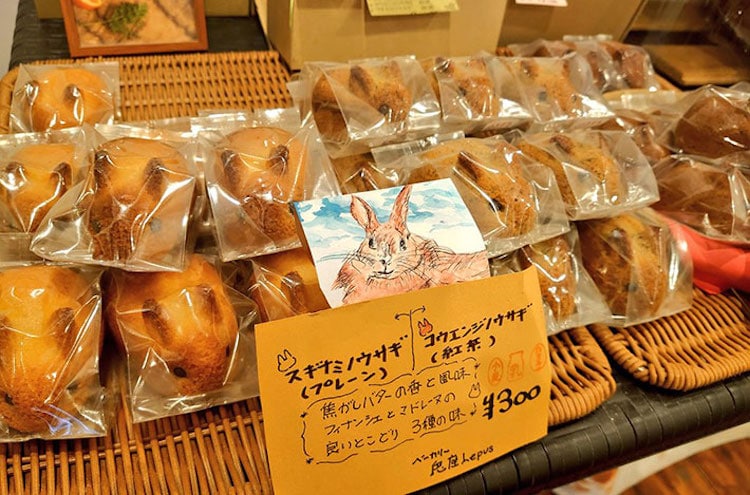 スギナミノウサギ
(プレーン)
コウエンジノウサギ
(紅茶)
焦がしバターの香と風味
フィナンシェとマドレーヌの
良いとこどり 3種の味
¥300
ベーカリー
兎座Lepus